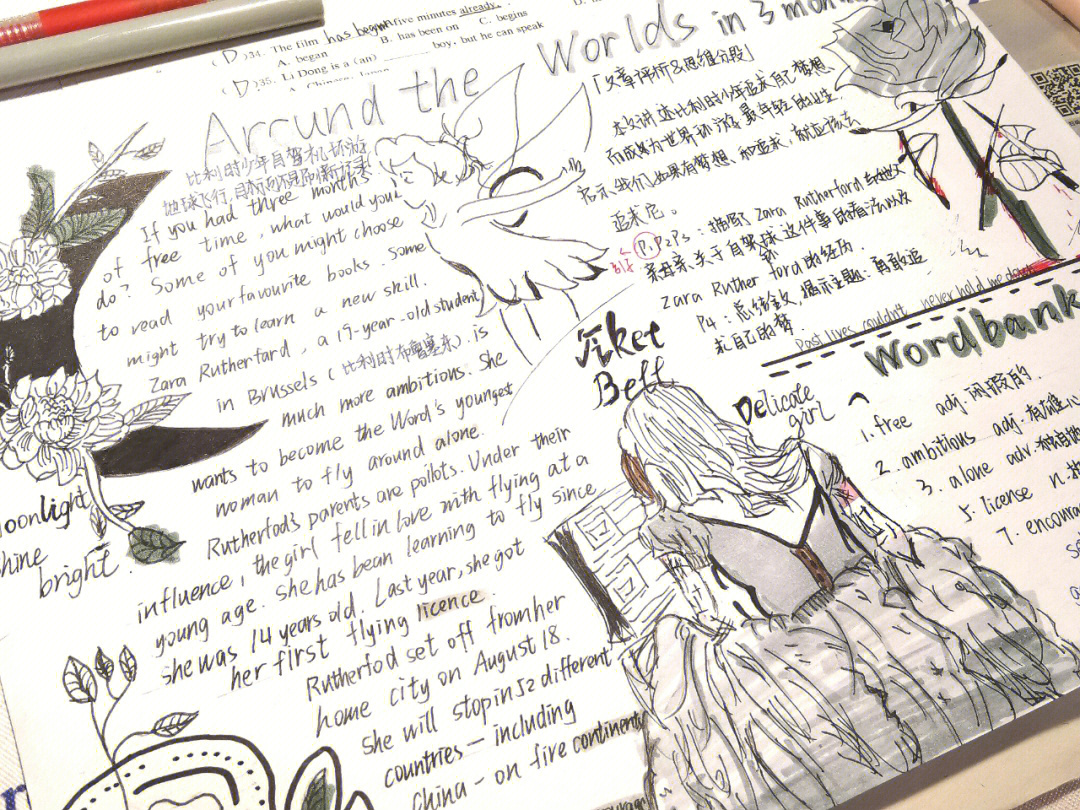 (D)34. The film has began five minutes already.
A. began B. has been on C. begins D.
(D)35. Li Dong is a (an) ______ boy, but he can speak
Arround the Worlds in 3 mon
比利时少年自驾飞机环游
地球飞行,目标
If you had three months
of free time, what would you
do? Some of you might choose
to read your favourite books. Some
might try to learn a new skill.
Zara Rutherfard, a 19-year-old student
in Brussels (比利时布鲁塞尔). is
much more ambitious. She
wants to become the Word's youngest
woman to fly around alone.
Rutherfod's parents are poilbts. Under their
influence, the girl fell in love with flying at a
young age. She has bean learning to fly since
she was 14 years old. Last year, she got
her first flying licence.
Rutherfod set off from her
home city on August 18.
she will stop in 52 different
countries — including
china - on five continents
「文章评析&思维分段」
本文讲述比利时少年追求自己梦想
而成为世界环游最年轻的女生.
启示我们,如果有梦想、和追求,就应该去
追求它。
P1P2P3: 描写 Zara Rutherford 与她父
亲母亲关于自驾环球这件事的看法以及
Zara Rutherford 的经历
P4: 总结全文,揭示主题: 勇敢追
求自己的梦.
Past lives couldn't never hold me down
Wordbank
1. free adj. 闲暇的.
2. ambitious adj. 有雄心
3. alone adv. 独自
5. license n.
7. encoura
ket
Bell
Delicate
girl
oonlight
hine
bright.